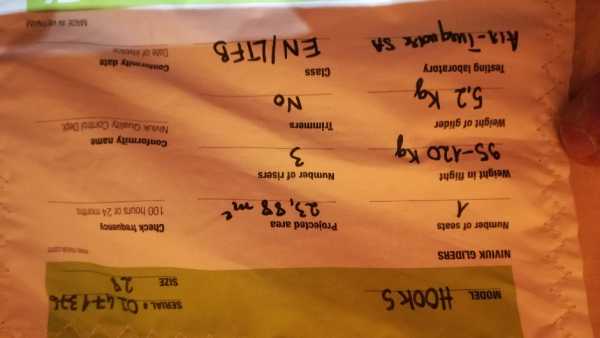 MODEL HOOK 5 SERIAL # 02471376
SIZE 28
NIVIUK GLIDERS
Number of seats 1
Projected area 23,88 m²
Check frequency 100 hours or 24 months
Weight in flight 95-120 Kg
Number of risers 3
Conformity name Niviuk Quality Control Dept.
Weight of glider 5,2 Kg
Trimmers No
Conformity date Date of invoice
Testing laboratory Air-Turquoise SA
Class EN/LTFB
MADE IN VIETNAM